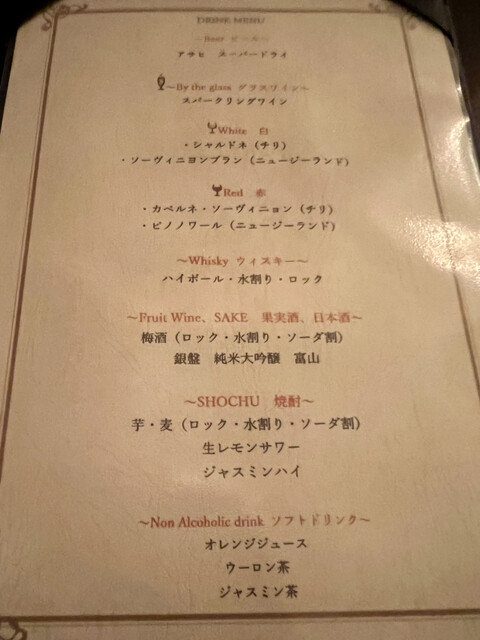 DRINK MENU
~Beer ビール~
アサヒ スーパードライ
~By the glass グラスワイン~
スパークリングワイン
White 白
・シャルドネ（チリ）
・ソーヴィニヨンブラン（ニュージーランド）
Red 赤
・カベルネ・ソーヴィニョン（チリ）
・ピノノワール（ニュージーランド）
~Whisky ウィスキー~
ハイボール・水割り・ロック
~Fruit Wine、SAKE 果実酒、日本酒~
梅酒（ロック・水割り・ソーダ割）
銀盤 純米大吟醸 富山
~SHOCHU 焼酎~
芋・麦（ロック・水割り・ソーダ割）
生レモンサワー
ジャスミンハイ
~Non Alcoholic drink ソフトドリンク~
オレンジジュース
ウーロン茶
ジャスミン茶